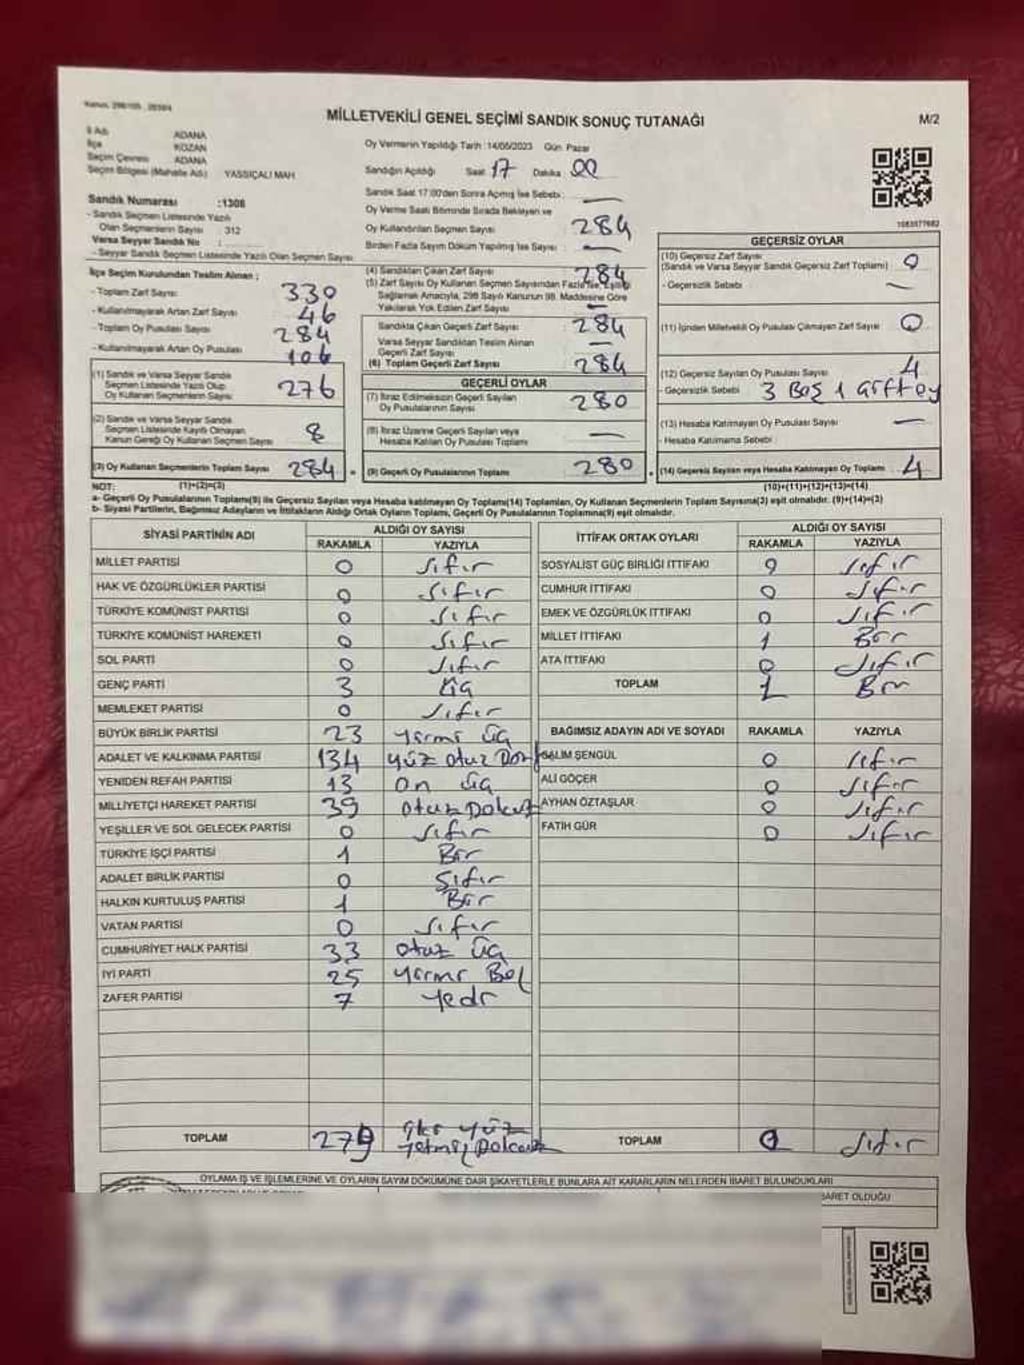 MİLLETVEKİLİ GENEL SEÇİMİ SANDIK SONUÇ TUTANAĞI
M/2
İl Adı ADANA
İlçe KOZAN
Seçim Çevresi ADANA
Seçim Bölgesi (Mahalle Adı) YASSIÇALI MAH
Sandık Numarası :1308
- Sandık Seçmen Listesinde Yazılı
Olan Seçmenlerin Sayısı 312
Varsa Seyyar Sandık No :
- Seyyar Sandık Seçmen Listesinde Yazılı Olan Seçmen Sayısı
İlçe Seçim Kurulundan Teslim Alınan ;
- Toplam Zarf Sayısı 330
- Kullanılmayarak Artan Zarf Sayısı 46
- Toplam Oy Pusulası Sayısı 284
- Kullanılmayarak Artan Oy Pusulası 106
(1) Sandık ve Varsa Seyyar Sandık
Seçmen Listesinde Yazılı Olup
Oy Kullanan Seçmenlerin Sayısı 276
(2) Sandık ve Varsa Seyyar Sandık
Seçmen Listesinde Kayıtlı Olmayan
Kanun Gereği Oy Kullanan Seçmen Sayısı 8
(3) Oy Kullanan Seçmenlerin Toplam Sayısı 284
Oy Vermenin Yapıldığı Tarih : 14/05/2023 Gün Pazar
Sandığın Açıldığı Saat 17 Dakika 00
Sandık Saat 17:00'den Sonra Açmış İse Sebebi : —
Oy Verme Saati Bitiminde Sırada Bekleyen ve
Oy Kullandırılan Seçmen Sayısı 284
Birden Fazla Sayım Döküm Yapılmış İse Sayısı —
(4) Sandıktan Çıkan Zarf Sayısı 284
(5) Zarf Sayısı Oy Kullanan Seçmen Sayısından Fazla İse, Eşitliği
Sağlamak Amacıyla, 298 Sayılı Kanunun 98. Maddesine Göre
Yakılarak Yok Edilen Zarf Sayısı —
Sandıkta Çıkan Geçerli Zarf Sayısı 284
Varsa Seyyar Sandıktan Teslim Alınan
Geçerli Zarf Sayısı —
(6) Toplam Geçerli Zarf Sayısı 284
GEÇERLİ OYLAR
(7) İtiraz Edilmeksizin Geçerli Sayılan
Oy Pusulalarının Sayısı 280
(8) İtiraz Üzerine Geçerli Sayılan veya
Hesaba Katılan Oy Pusulası Toplamı —
(9) Geçerli Oy Pusulalarının Toplamı 280
1083577682
GEÇERSİZ OYLAR
(10) Geçersiz Zarf Sayısı
(Sandık ve Varsa Seyyar Sandık Geçersiz Zarf Toplamı) 0
- Geçersizlik Sebebi —
(11) İçinden Milletvekili Oy Pusulası Çıkmayan Zarf Sayısı 0
(12) Geçersiz Sayılan Oy Pusulası Sayısı 4
- Geçersizlik Sebebi 3 Boş 1 çift oy
(13) Hesaba Katılmayan Oy Pusulası Sayısı —
- Hesaba Katılmama Sebebi
(14) Geçersiz Sayılan veya Hesaba Katılmayan Oy Toplamı 4
NOT: (1)+(2)=(3) (10)+(11)+(12)+(13)=(14)
a- Geçerli Oy Pusulalarının Toplamı(9) ile Geçersiz Sayılan veya Hesaba katılmayan Oy Toplamı(14) Toplamları, Oy Kullanan Seçmenlerin Toplam Sayısına(3) eşit olmalıdır. (9)+(14)=(3)
b- Siyasi Partilerin, Bağımsız Adayların ve İttifakların Aldığı Ortak Oyların Toplamı, Geçerli Oy Pusulalarının Toplamına(9) eşit olmalıdır.
SİYASİ PARTİNİN ADI ALDIĞI OY SAYISI
RAKAMLA YAZIYLA
MİLLET PARTİSİ 0 sıfır
HAK VE ÖZGÜRLÜKLER PARTİSİ 0 sıfır
TÜRKİYE KOMÜNİST PARTİSİ 0 sıfır
TÜRKİYE KOMÜNİST HAREKETİ 0 sıfır
SOL PARTİ 0 sıfır
GENÇ PARTİ 3 üç
MEMLEKET PARTİSİ 0 sıfır
BÜYÜK BİRLİK PARTİSİ 23 yirmi üç
ADALET VE KALKINMA PARTİSİ 134 yüz otuz Dört
YENİDEN REFAH PARTİSİ 13 on üç
MİLLİYETÇİ HAREKET PARTİSİ 39 otuz Dokuz
YEŞİLLER VE SOL GELECEK PARTİSİ 0 sıfır
TÜRKİYE İŞÇİ PARTİSİ 1 Bir
ADALET BİRLİK PARTİSİ 0 Sıfır
HALKIN KURTULUŞ PARTİSİ 1 Bir
VATAN PARTİSİ 0 sıfır
CUMHURİYET HALK PARTİSİ 33 otuz üç
İYİ PARTİ 25 yirmi Beş
ZAFER PARTİSİ 7 Yedi
TOPLAM 279 iki yüz
yetmiş Dokuz
İTTİFAK ORTAK OYLARI ALDIĞI OY SAYISI
RAKAMLA YAZIYLA
SOSYALİST GÜÇ BİRLİĞİ İTTİFAKI 0 sıfır
CUMHUR İTTİFAKI 0 sıfır
EMEK VE ÖZGÜRLÜK İTTİFAKI 0 sıfır
MİLLET İTTİFAKI 1 Bir
ATA İTTİFAKI 0 sıfır
TOPLAM 1 Bir
BAĞIMSIZ ADAYIN ADI VE SOYADI RAKAMLA YAZIYLA
SALİM ŞENGÜL 0 sıfır
ALİ GÖÇER 0 sıfır
AYHAN ÖZTAŞLAR 0 sıfır
FATİH GÜR 0 sıfır
TOPLAM 0 sıfır
OYLAMA İŞ VE İŞLEMLERİNE VE OYLARIN SAYIM DÖKÜMÜNE DAİR ŞİKAYETLERLE BUNLARA AİT KARARLARIN NELERDEN İBARET BULUNDUKLARI
İBARET OLDUĞU